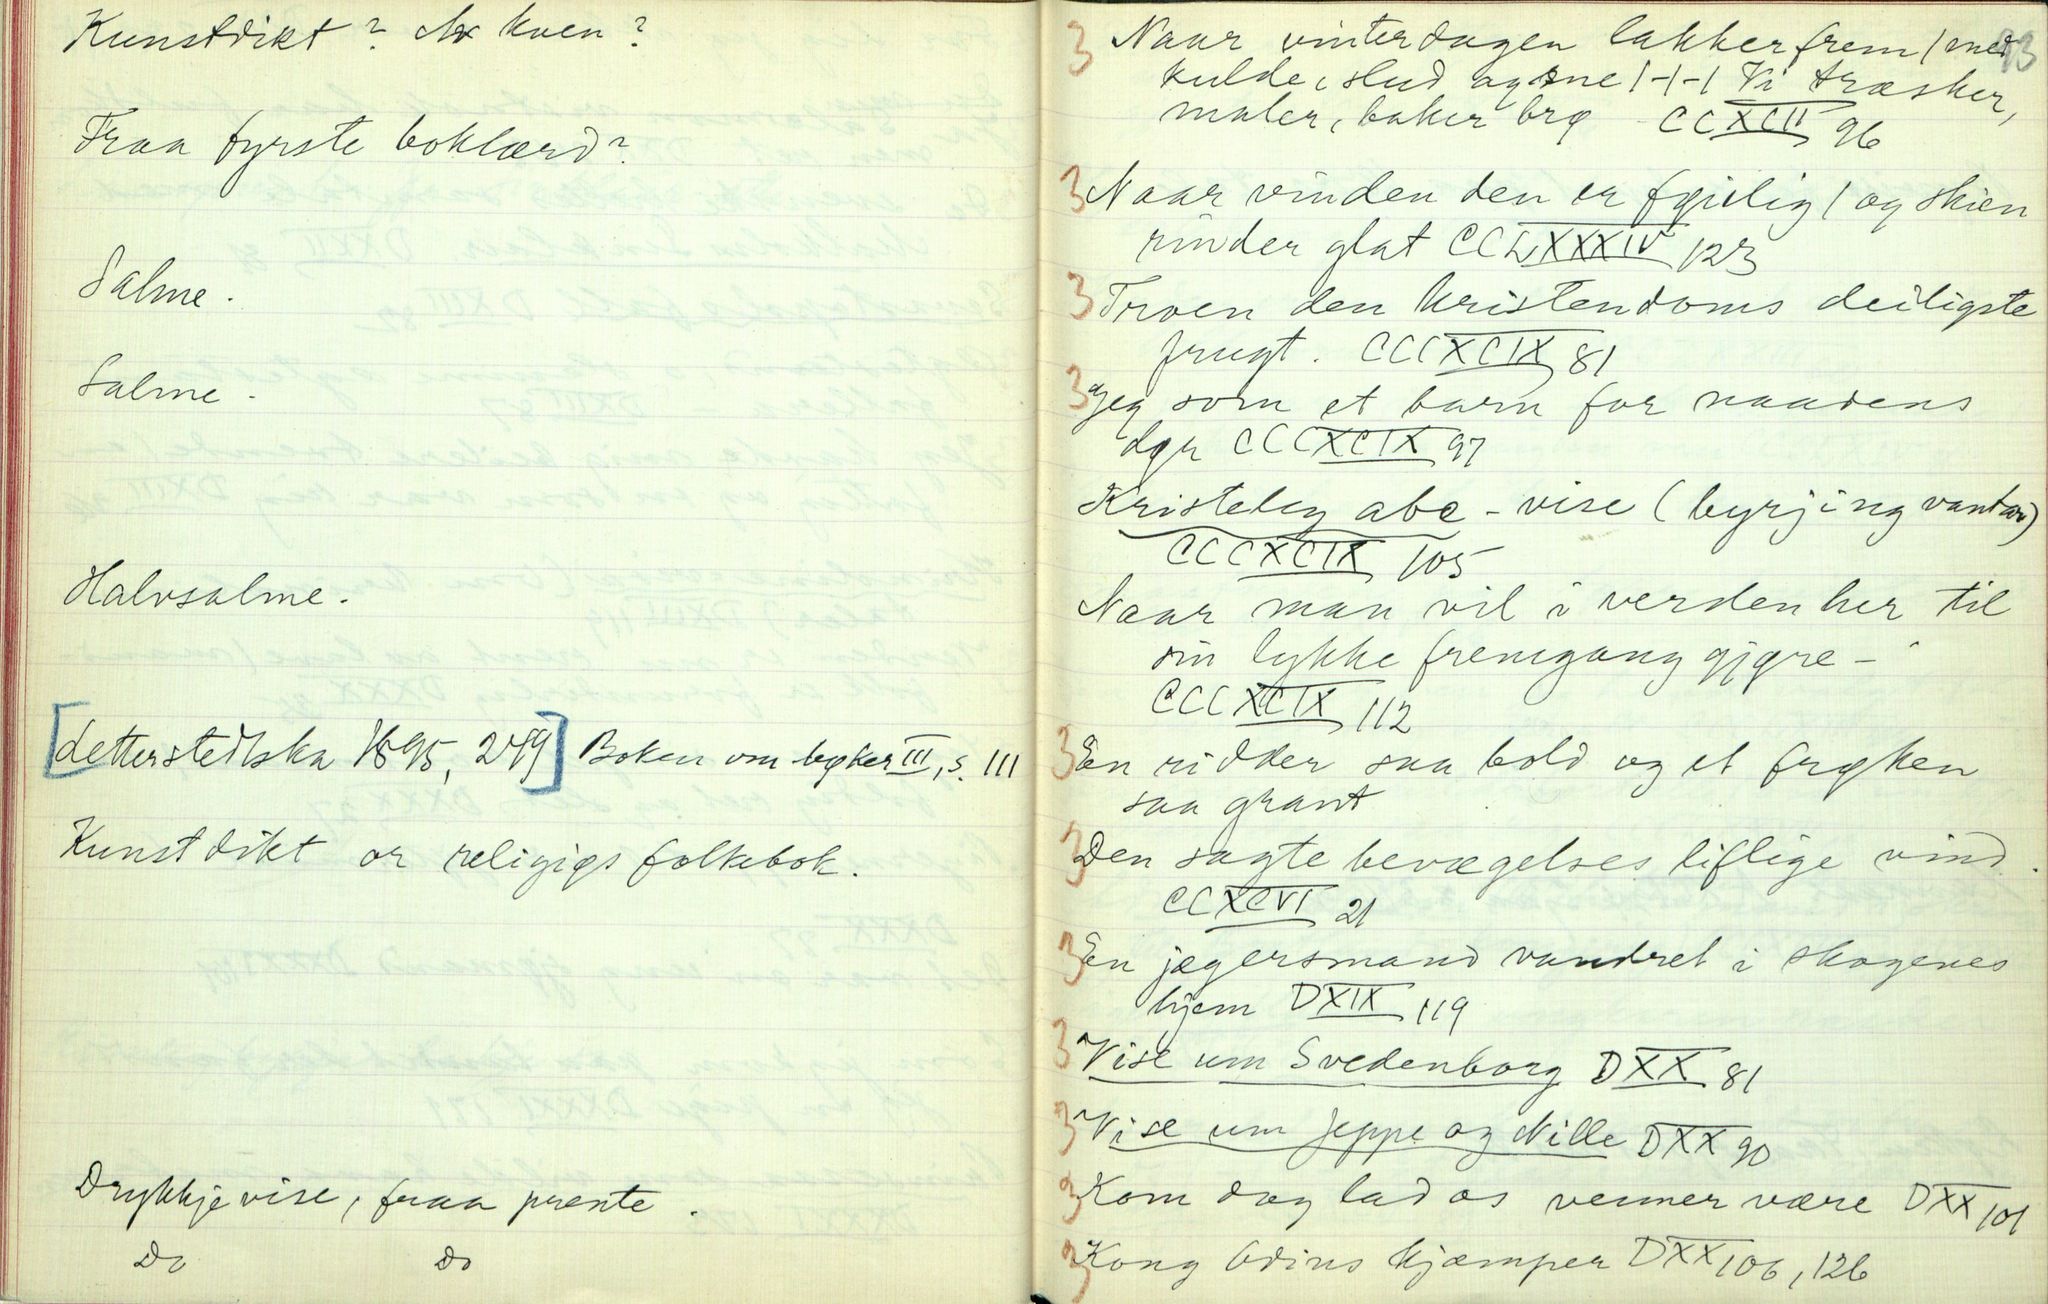 Kunstdikt? Av kven?
Fraa fyrste boklærd?
Salme.
Salme.
Halvsalme.
[Letterstedtska 1895, 249] Boken om bøker III, s. 111
Kunstdikt or religiøs folkebok.
Drykkjevise, fraa prente.
Do Do
93
3 Naar vinterdagen lakker frem / med
kulde, slud og sne /-/-/ Vi træsker,
maler, baker brø CCXCII 96
3 Naar vinden den er føielig / og skien
rinder glat CCLXXXIV 123
3 Troen den kristendoms deiligste
frugt. CCCXCIX 81
3 Jeg som et barn for naadens
dør CCCXCIX 97
Kristeleg abc-vise (byrjing vantar)
CCCXCIX 105
Naar man vil i verden her til
sin lykke fremgang gjøre -
CCCXCIX 112
3 En ridder saa bold og et frøken
saa grant
3 Den sagte bevægelses liflige vind.
CCXCVI 21
3 En jægersmand vandret i skogenes
hjem DXIX 119
3 Vise um Svedenborg DXX 81
3 Vise um Jeppe og Nille DXX 90
3 Kom dog lad os venner være DXX 101
3 Kong Odins kjæmper DXX 106, 126